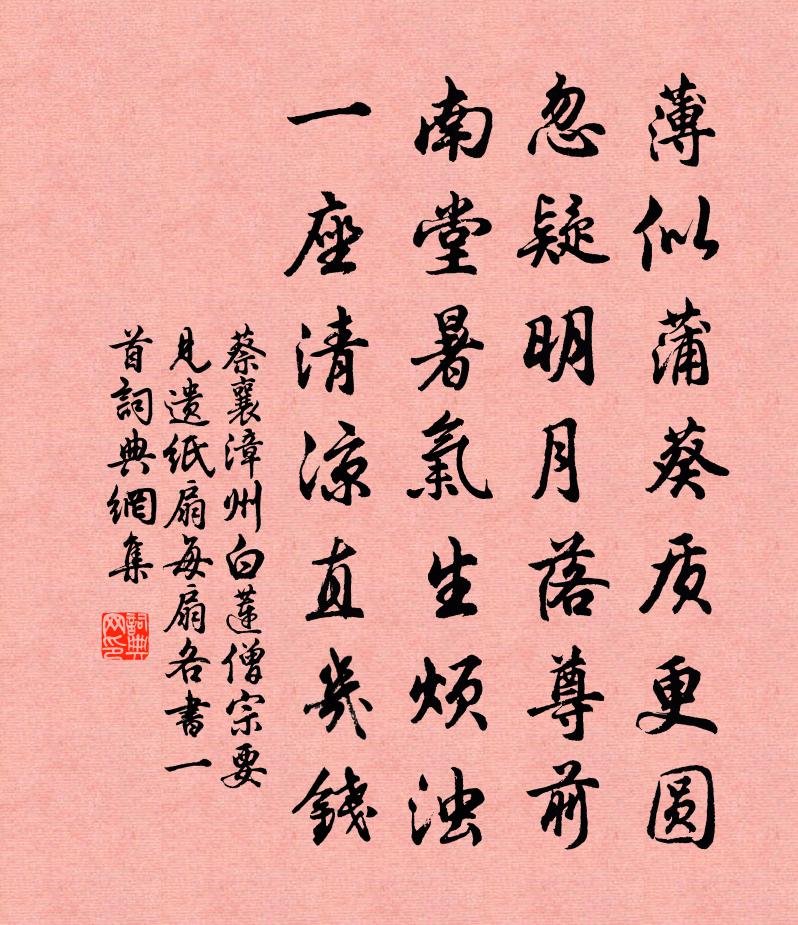 薄似蒲葵质更圆
忽疑明月落尊前
南堂暑氣生烦浊
一座清凉直幾錢
蔡襄漳州白蓮僧宗要
見遗纸扇每扇各書一
首詞典網集
詞典網印